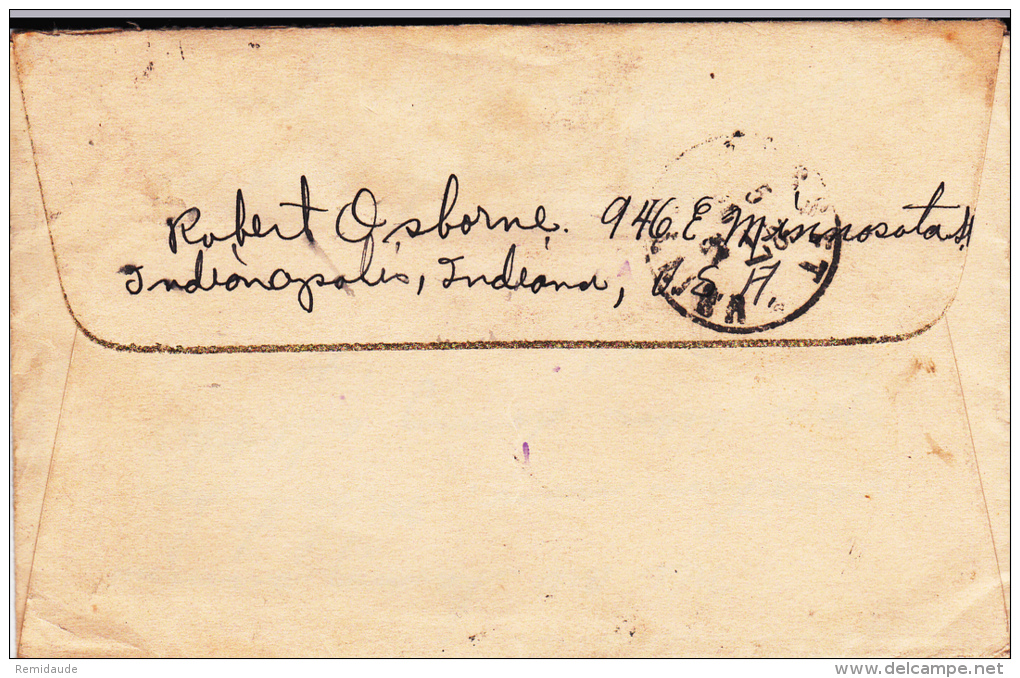 Robert Osborne. 946 E Minnosota St
Indianapolis, Indiana, U.S.A.
Remidaude
www.delcampe.net